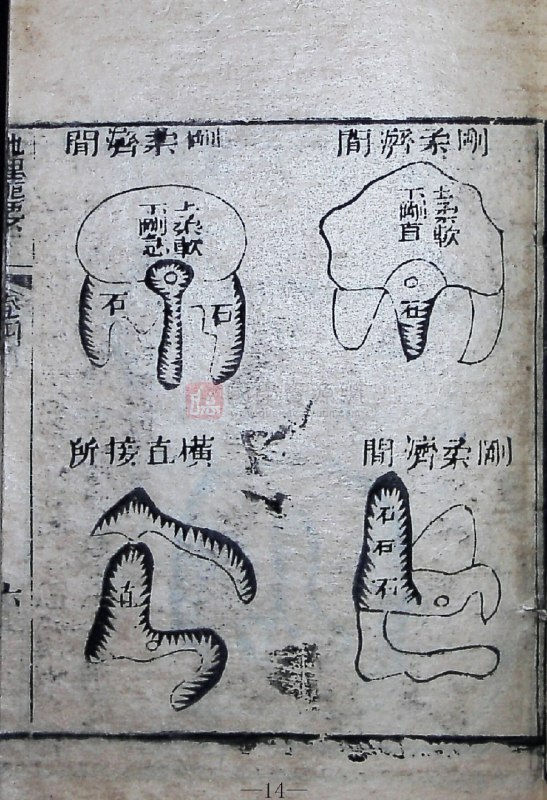 剛柔濟間
上柔軟
下剛直
石
剛柔濟間
上柔軟
下剛急
石
石
剛柔濟間
石石石
橫直接所
直
地理
卷四
六
—14—